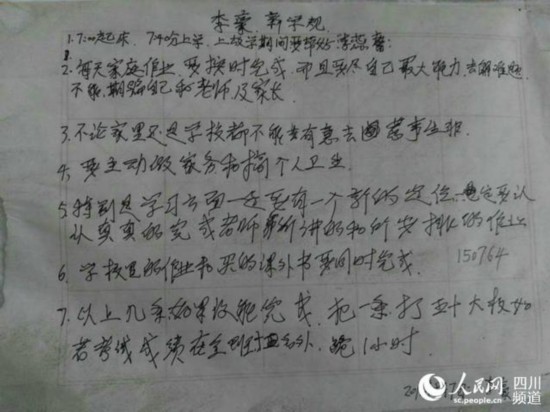 李豪新家规
1.7:00起床,7:40分上学,上放学期间要帮
2.每天家庭作业,要按时完成,而且要尽自己最大能力,去解准题
不能期骗自己和老师及家长
3.不论家里还是学校都不能去有意去圈惹事生非
4.要主动做家务和搞个人卫生
5.特别是学习方面一定要有一个新的定位,一定要认
认真真的完成老师所讲的和所安排的作业
6.学校里的作业和买的课外书要同时完成.
150764
7.以上几条如果没能完成,把一条打五十大板如
者考试成绩在 名外,跪1小时
人民网 四川频道
sc.people.cn